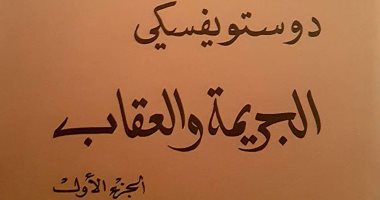 دوستويفسكي
الجريمة والعقاب
الجزء الأول